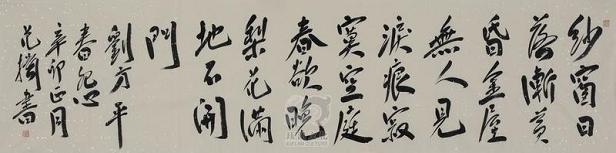 纱窗日
落渐黄
昏金屋
無人見
淚痕寂
寞空庭
春欲晚
梨花滿
地不開
門
劉方平
春怨
辛卯正月